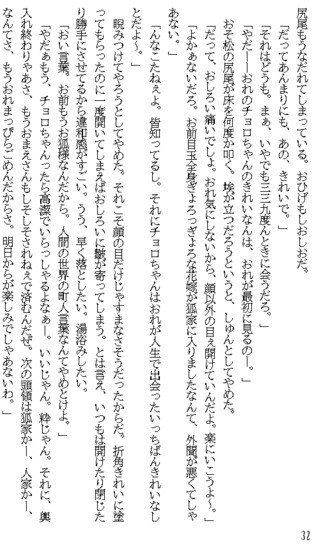 尻尾もうなだれてしまっている。おひげもしおしおだ。
「だってあんまりにも、あの、きれいで。」
「それはどうも。まぁ、いやでも三三九度んときに会うだろ。」
「やだーおれのチョロちゃんのきれいなんは、おれが最初に見るの―。」
おそ松の尻尾が床を何度か叩く。埃が立つだろうというと、しゅんとしてやめた。
「だって、おしろい痛いでしょ。おれ気にしないから、顔以外の目ぇ開けていんだよ。楽にいこうよ〜。」
「よかぁないだろ。お前目玉全身ぎょろっぎょろな花嫁が狐家に入りましたなんて、外聞が悪くてしゃ
あない。」
「んなこたねぇよ。皆知ってるし。それにチョロちゃんはおれが人生で出会ったいっちばんきれいなし
とだよ〜。」
睨みつけてやろうとしてやめた。それこそ顔の目だけじゃすまなさそうだったからだ。折角きれいに塗
ってもらったのに一度開いてしまえばおしろいに皺が寄ってしまう。とは言え、いつもは開けたり閉じた
り勝手にさせてるから違和感がすごい。うう、早く落としたい。湯浴みしたい。
「おい言葉。お前もうお狐様なんだから、人間の世界の町人言葉なんてやめとけよ。」
「やだぁもう、チョロちゃんったら高潔でいらっしゃるよなぁー。いいじゃん。粋じゃん。それに、輿
入れ終わりゃあさ、もうおまえさんもしそしそされねぇで済むんだぜ。次の頭領は狐家かー、人家かー、
なんてさ、もうおれまっぴらごめんだからさ。明日からが楽しみでしゃあないわ。」
32